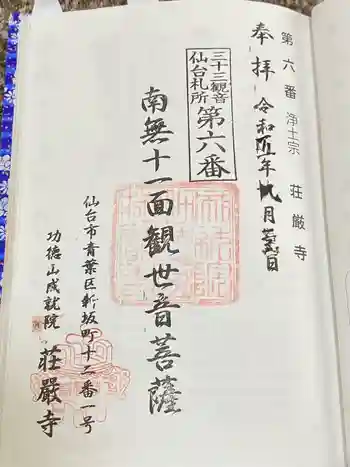 第六番 浄土宗 荘厳寺
奉拝 令和五年九月 日
三十三観音
仙台札所
第六番
南無十一面観世音菩薩
仙台市青葉区新坂町十二番一号
功徳山成就院
荘嚴寺